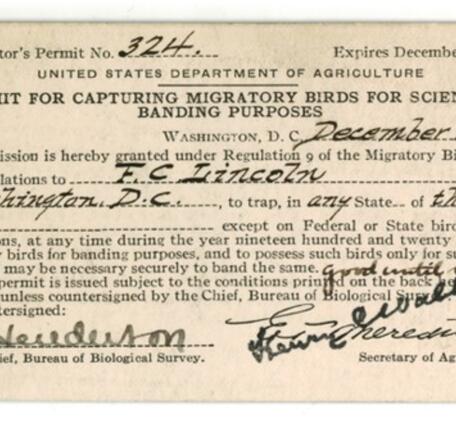 tor's Permit No. 324. Expires December
UNITED STATES DEPARTMENT OF AGRICULTURE
MIT FOR CAPTURING MIGRATORY BIRDS FOR SCIEN
BANDING PURPOSES
WASHINGTON, D. C. December
ission is hereby granted under Regulation 9 of the Migratory Bi
lations to F. C. Lincoln
hington, D.C., to trap, in any State of th
except on Federal or State bird
ons, at any time during the year nineteen hundred and twenty
y birds for banding purposes, and to possess such birds only for su
may be necessary securely to band the same. good until
permit is issued subject to the conditions printed on the back
unless countersigned by the Chief, Bureau of Biological Surve
tersigned:
Henderson
ief, Bureau of Biological Survey. Secretary of Ag